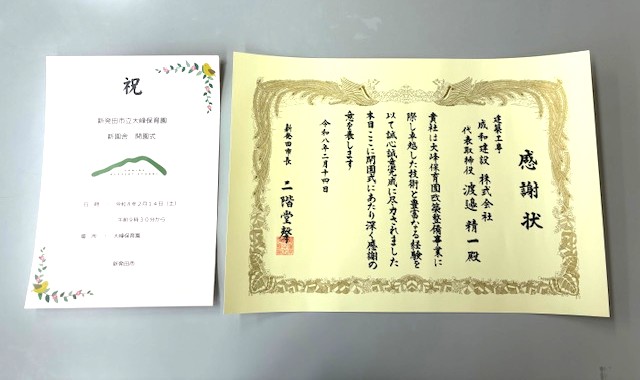 祝
新発田市立大峰保育園
新園舎 開園式
日 時 令和8年2月14日(土)
午前9時30分から
場 所 : 大峰保育園
新発田市
感謝状
建築工事
成和建設 株式会社
代表取締役 渡邉 精一殿
貴社は大峰保育園改築整備事業に
際し卓越した技術と豊富なる経験を
以て誠心誠意完成に尽力されました
本日ここに開園式にあたり深く感謝の
意を表します
令和八年二月十四日
新発田市長 二階堂 馨